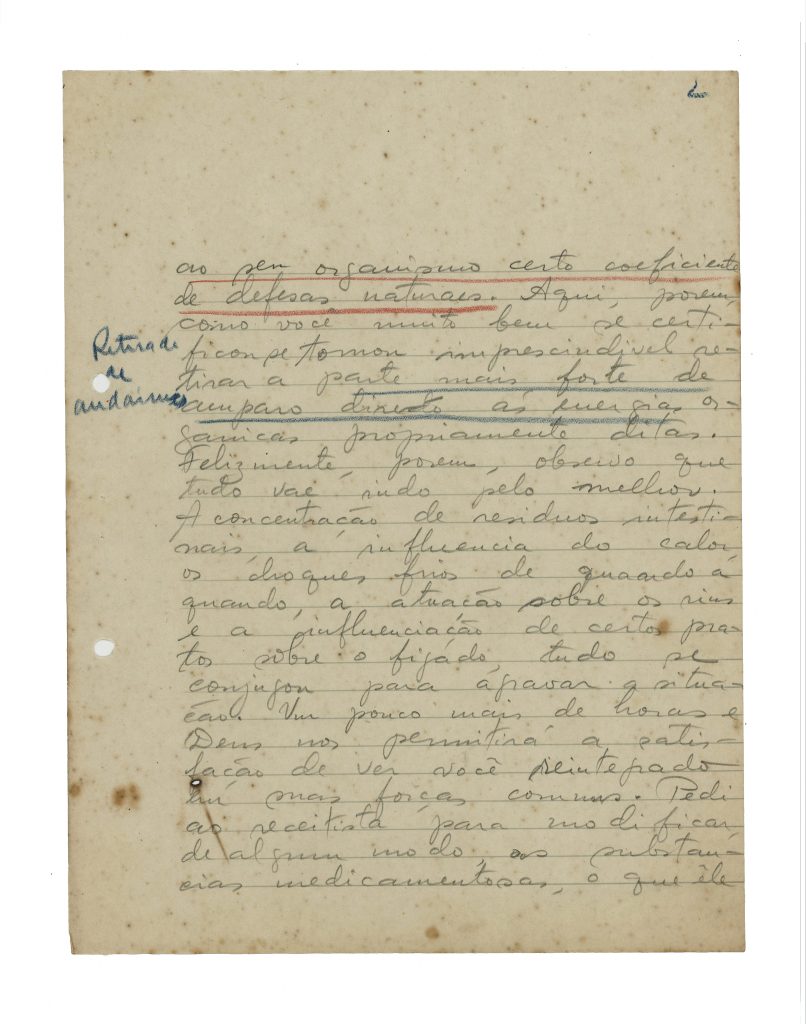 2
ao seu organismo certo coeficiente
de defesas naturaes. Aqui, porem,
como você muito bem se certi-
ficou se tornou imprescindivel re-
tirar a parte mais forte de
amparo direto ás energias or-
ganicas propriamente ditas.
Felizmente, porem, observo que
tudo vae indo pelo melhor.
A concentração de residuos intesti-
nais, a influencia do calor,
os choques frios de quando á
quando, a atuação sobre os rins
e a influenciação de certos pra-
tos sobre o figado, tudo se
conjugou para agravar a situa-
ção. Um pouco mais de horas e
Deus nos permitirá a satis-
fação de ver você reintegrado
em suas forças comuns. Pedi
ao receitista para modificar
de algum modo, as substan-
cias medicamentosas, o que êle
Retirada
de
andaimes